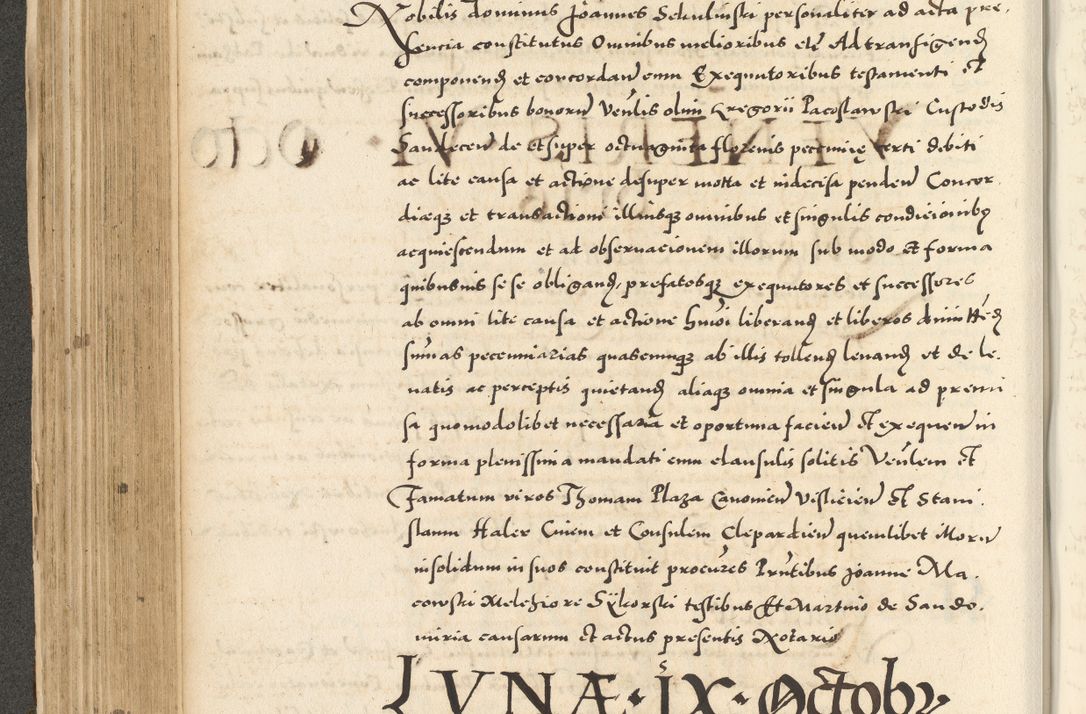 Nobilis dominus Joannes Sekulinski personaliter ad acta pre.
sencia constitutus Omnibus melioribus etc Ad transigend
componend et concordan cum Exequutoribus testamenti et
successoribus bonorum Venlis olim Gregorii Pacoslawski Custodis
Sandecen de et super octuaginta florenis pecunię certi debiti
ac lite causa et actione desuper motta et indecisa penden Concor
diæqz et transactioni illiusqz omnibus et singulis condicionibz
acquiescendum et ad observacionem illorum sub modo et forma
quibusuis se se obligand, prefatosqz exequutores et successores
ab omni lite causa et actione hmoi liberand et liberos
sumas pecuniarias quascunqz ab illis tollend levand et de le.
vatis ac perceptis quietand aliaqz omnia et singula ad premi
sa quomodolibet necessaria et oportuna facien et exequen in
forma plenissima mandati cum clausulis solitis Venlem et
Famatum viros Thomam Plaza Canonicu Visliciem et Stani.
slaum Haler Civem et Consulem Clepardien quemlibet illorum
insolidum in suos constituit procures Prntibus Joanne Ma.
cowski Melchiore Sykorski testibus Et Martino de Sando.
miria causarum et actus presentis Notario
LVNÆ · IX · Octobr